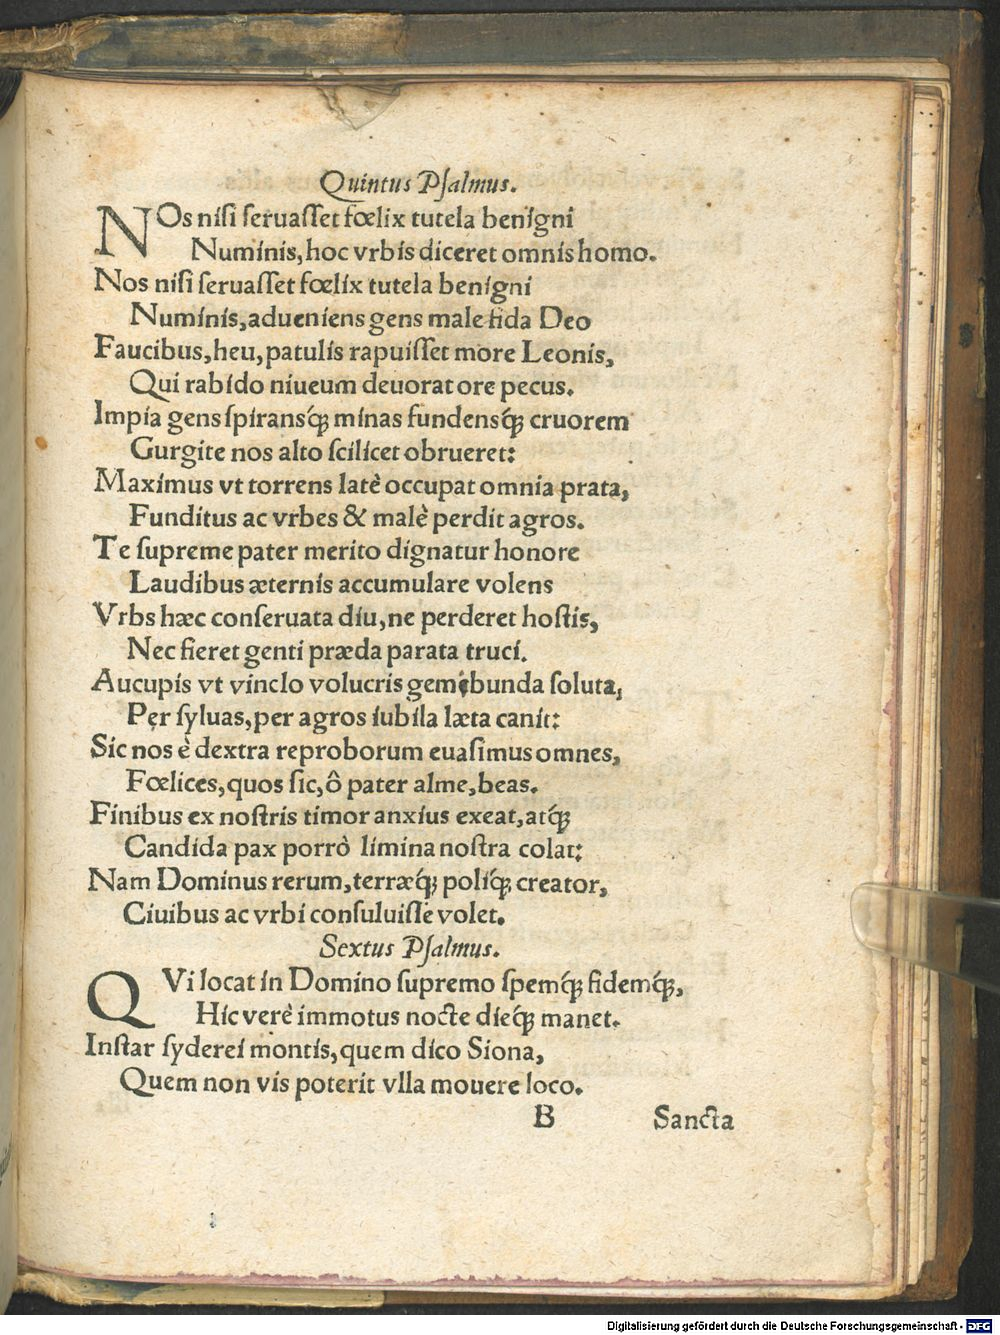 Quintus Psalmus.
NOs nisi seruasset fœlix tutela benigni
Numinis, hoc vrbis diceret omnis homo.
Nos nisi seruasset fœlix tutela benigni
Numinis, adueniens gens male fida Deo
Faucibus, heu, patulis rapuisset more Leonis,
Qui rabido niueum deuorat ore pecus.
Impia gens spiransq́ꝫ minas fundensq́ꝫ cruorem
Gurgite nos alto scilicet obrueret:
Maximus vt torrens latè occupat omnia prata,
Funditus ac vrbes & malè perdit agros.
Te supreme pater merito dignatur honore
Laudibus æternis accumulare volens
Vrbs hæc conseruata diu, ne perderet hostis,
Nec fieret genti præda parata truci.
Aucupis vt vinclo volucris gemebunda soluta,
Per syluas, per agros iubila læta canit:
Sic nos è dextra reproborum euasimus omnes,
Fœlices, quos sic, ô pater alme, beas.
Finibus ex nostris timor anxius exeat, atq́ꝫ
Candida pax porrò limina nostra colat:
Nam Dominus rerum, terræq́ꝫ poliq́ꝫ creator,
Ciuibus ac vrbi consuluisse volet.
Sextus Psalmus.
QVi locat in Domino supremo spemq́ꝫ fidemq́ꝫ,
Hic verè immotus nocte dieq́ꝫ manet.
Instar syderei montis, quem dico Siona,
Quem non vis poterit vlla mouere loco.
B Sancta
Digitalisierung gefördert durch die Deutsche Forschungsgemeinschaft - DFG